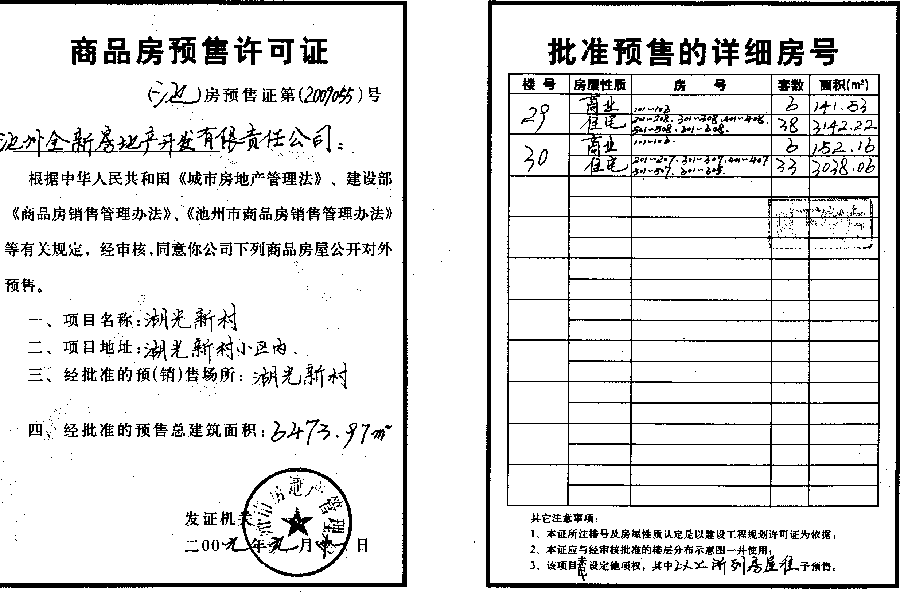 商品房预售许可证
(池)房预售证第(2009055)号
全新房地产开发有限责任公司:
根据中华人民共和国《城市房地产管理法》、建设部
《商品房销售管理办法》、《池州市商品房销售管理办法》
等有关规定，经审核，同意你公司下列商品房屋公开对外
预售。
一、项目名称:湖光新村
二、项目地址:湖光新村小区内.
三、经批准的预(销)售场所:湖光新村
四、经批准的预售总建筑面积:6473.97m²
房地产管理
发证机关
二00九年九月十一日
批准预售的详细房号
楼号 房屋性质 房号 套数 面积(m²)
29 商业 101-106 6 141.53
住宅 201-208.301-308.401-408. 38 3142.22
501-508.
30 商业 101-106. 6 152.16
住宅 201-207.301-307.401-407 33 3038.06
501-507.
其它注意事项:
1、本证所注楼号及房屋性质认定是以建设工程规划许可证为依据;
2、本证应与经审核批准的楼层分布示意图一并使用;
3、该项目 设定他项权，其中 以上所列房屋准予预售。